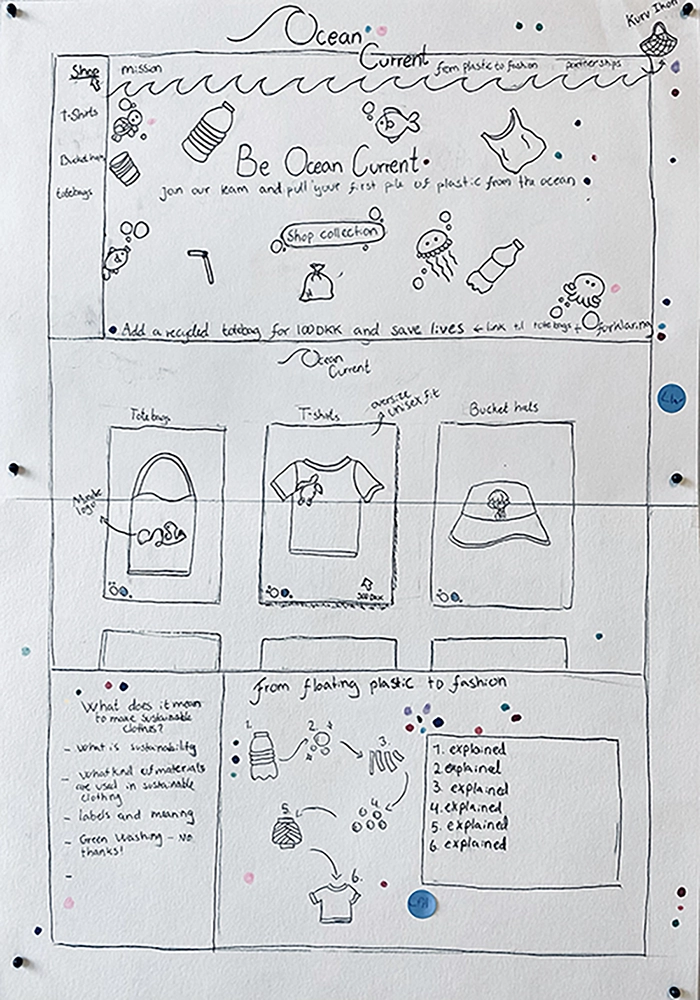 Ocean
Current
Kurv Ikon
Shop
mission
from plastic to fashion
partnerships
T-Shirts
Bucket hats
totebags
Be Ocean Current.
Join our team and pull your first pile of plastic from the ocean
Shop collection
Add a recycled totebag for 100DKK and save lives ← link til totebags + forklaring
Ocean
Current
Totebags
T-shirts
oversize
unisex fit
Bucket hats
logo
300 DKK
What does it mean
to make sustainable
clothes?
- What is sustainability
- What kind of materials
are used in sustainable
clothing
- labels and meaning
- Green Washing - no
thanks!
-
From floating plastic to fashion
1.
2.
3.
4.
5.
6.
1. explained
2. explained
3. explained
4. explained
5. explained
6. explained